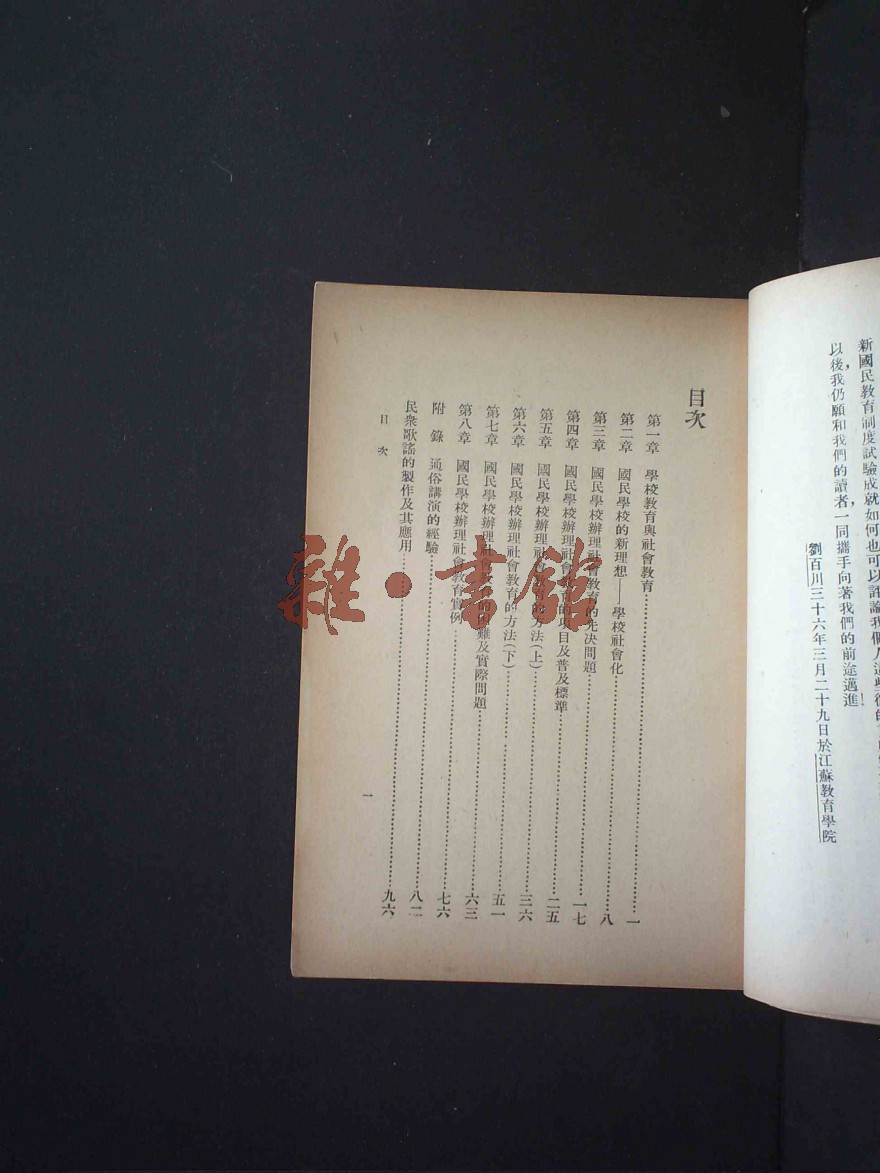 新國民教育制度試驗成就如何也可以評論我個人這些
以後，我仍願和我們的讀者，一同攜手向著我們的前途邁進！
劉百川三十六年三月二十九日於江蘇教育學院
目次
第一章 學校教育與社會教育……一
第二章 國民學校的新理想——學校社會化……八
第三章 國民學校辦理社會教育的先決問題……一七
第四章 國民學校辦理社會教育的項目及普及標準……二五
第五章 國民學校辦理社會教育的方法（上）……三六
第六章 國民學校辦理社會教育的方法（下）……五一
第七章 國民學校辦理社會教育的困難及實際問題……六三
第八章 國民學校辦理社會教育實例……七六
附錄 通俗講演的經驗……八二
民衆歌謠的製作及其應用……九六
目次
一
雜·書館